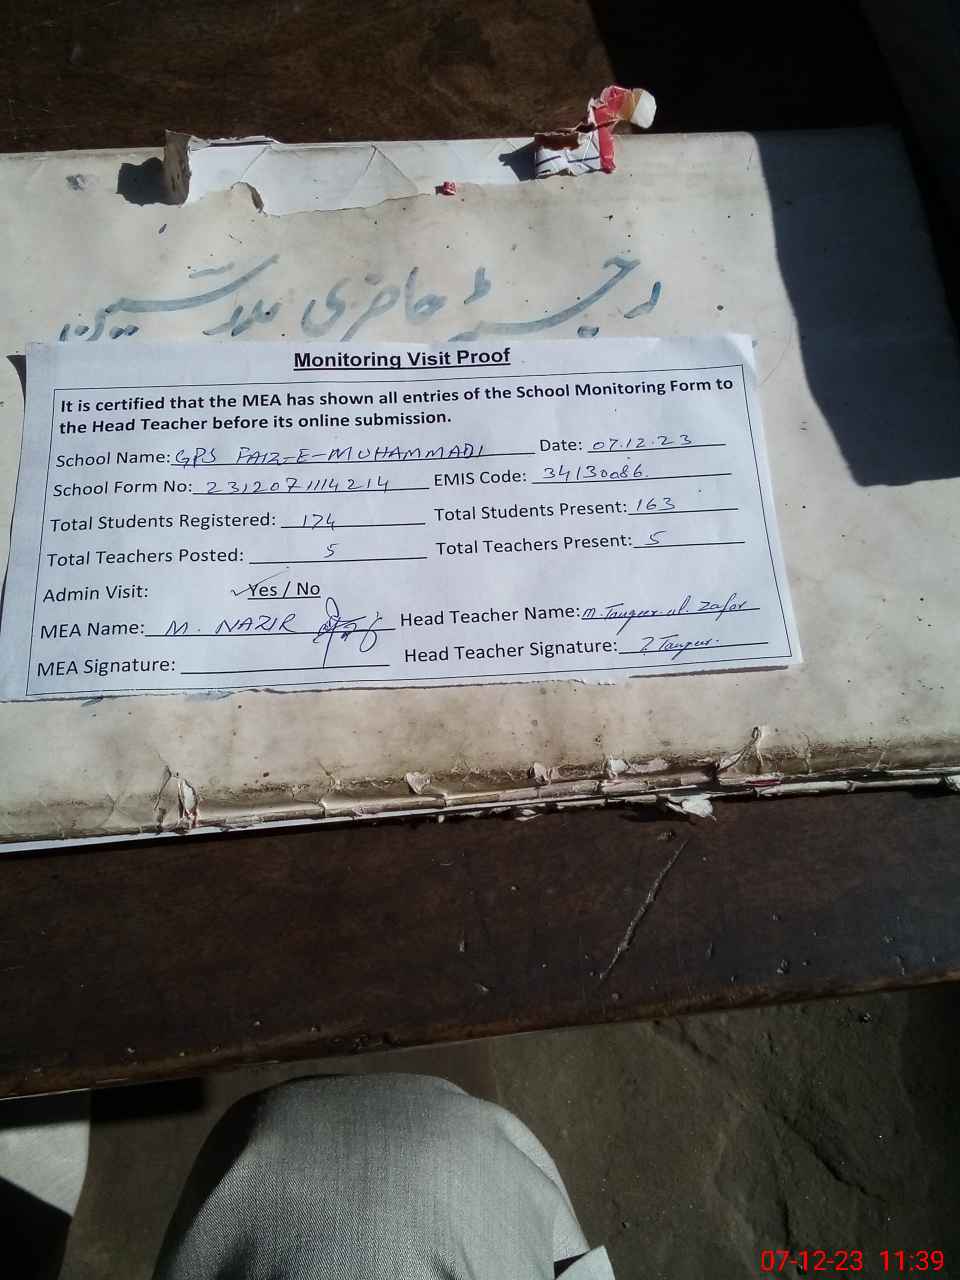 رجسٹر حاضری مدرسین
Monitoring Visit Proof
It is certified that the MEA has shown all entries of the School Monitoring Form to
the Head Teacher before its online submission.
School Name: GPS FAIZ-E-MUHAMMADI Date: 07.12.23
School Form No: 2312071114214 EMIS Code: 34130086.
Total Students Registered: 174 Total Students Present: 163
Total Teachers Posted: 5 Total Teachers Present: 5
Admin Visit: Yes / No
MEA Name: M. NAZIR Head Teacher Name: M. Tauqeer ul Zafar
MEA Signature: Head Teacher Signature:
07-12-23 11:39